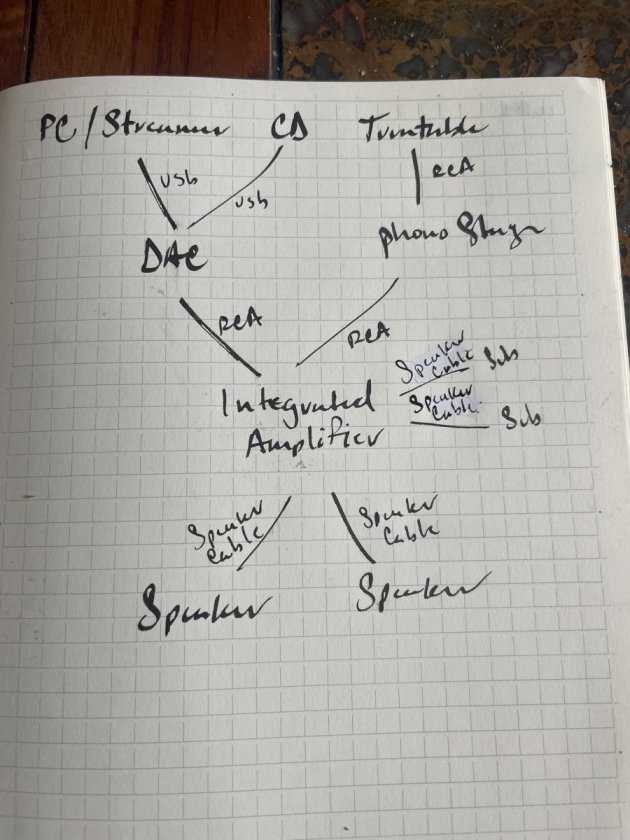 PC / Streamer CD Turntable
usb
usb
RCA
DAC
phono Stage
RCA
RCA
Speaker
Cable
Sub
Integrated
Amplifier
Speaker
Cable
Sub
Speaker
Cable
Speaker
Cable
Speaker
Speaker